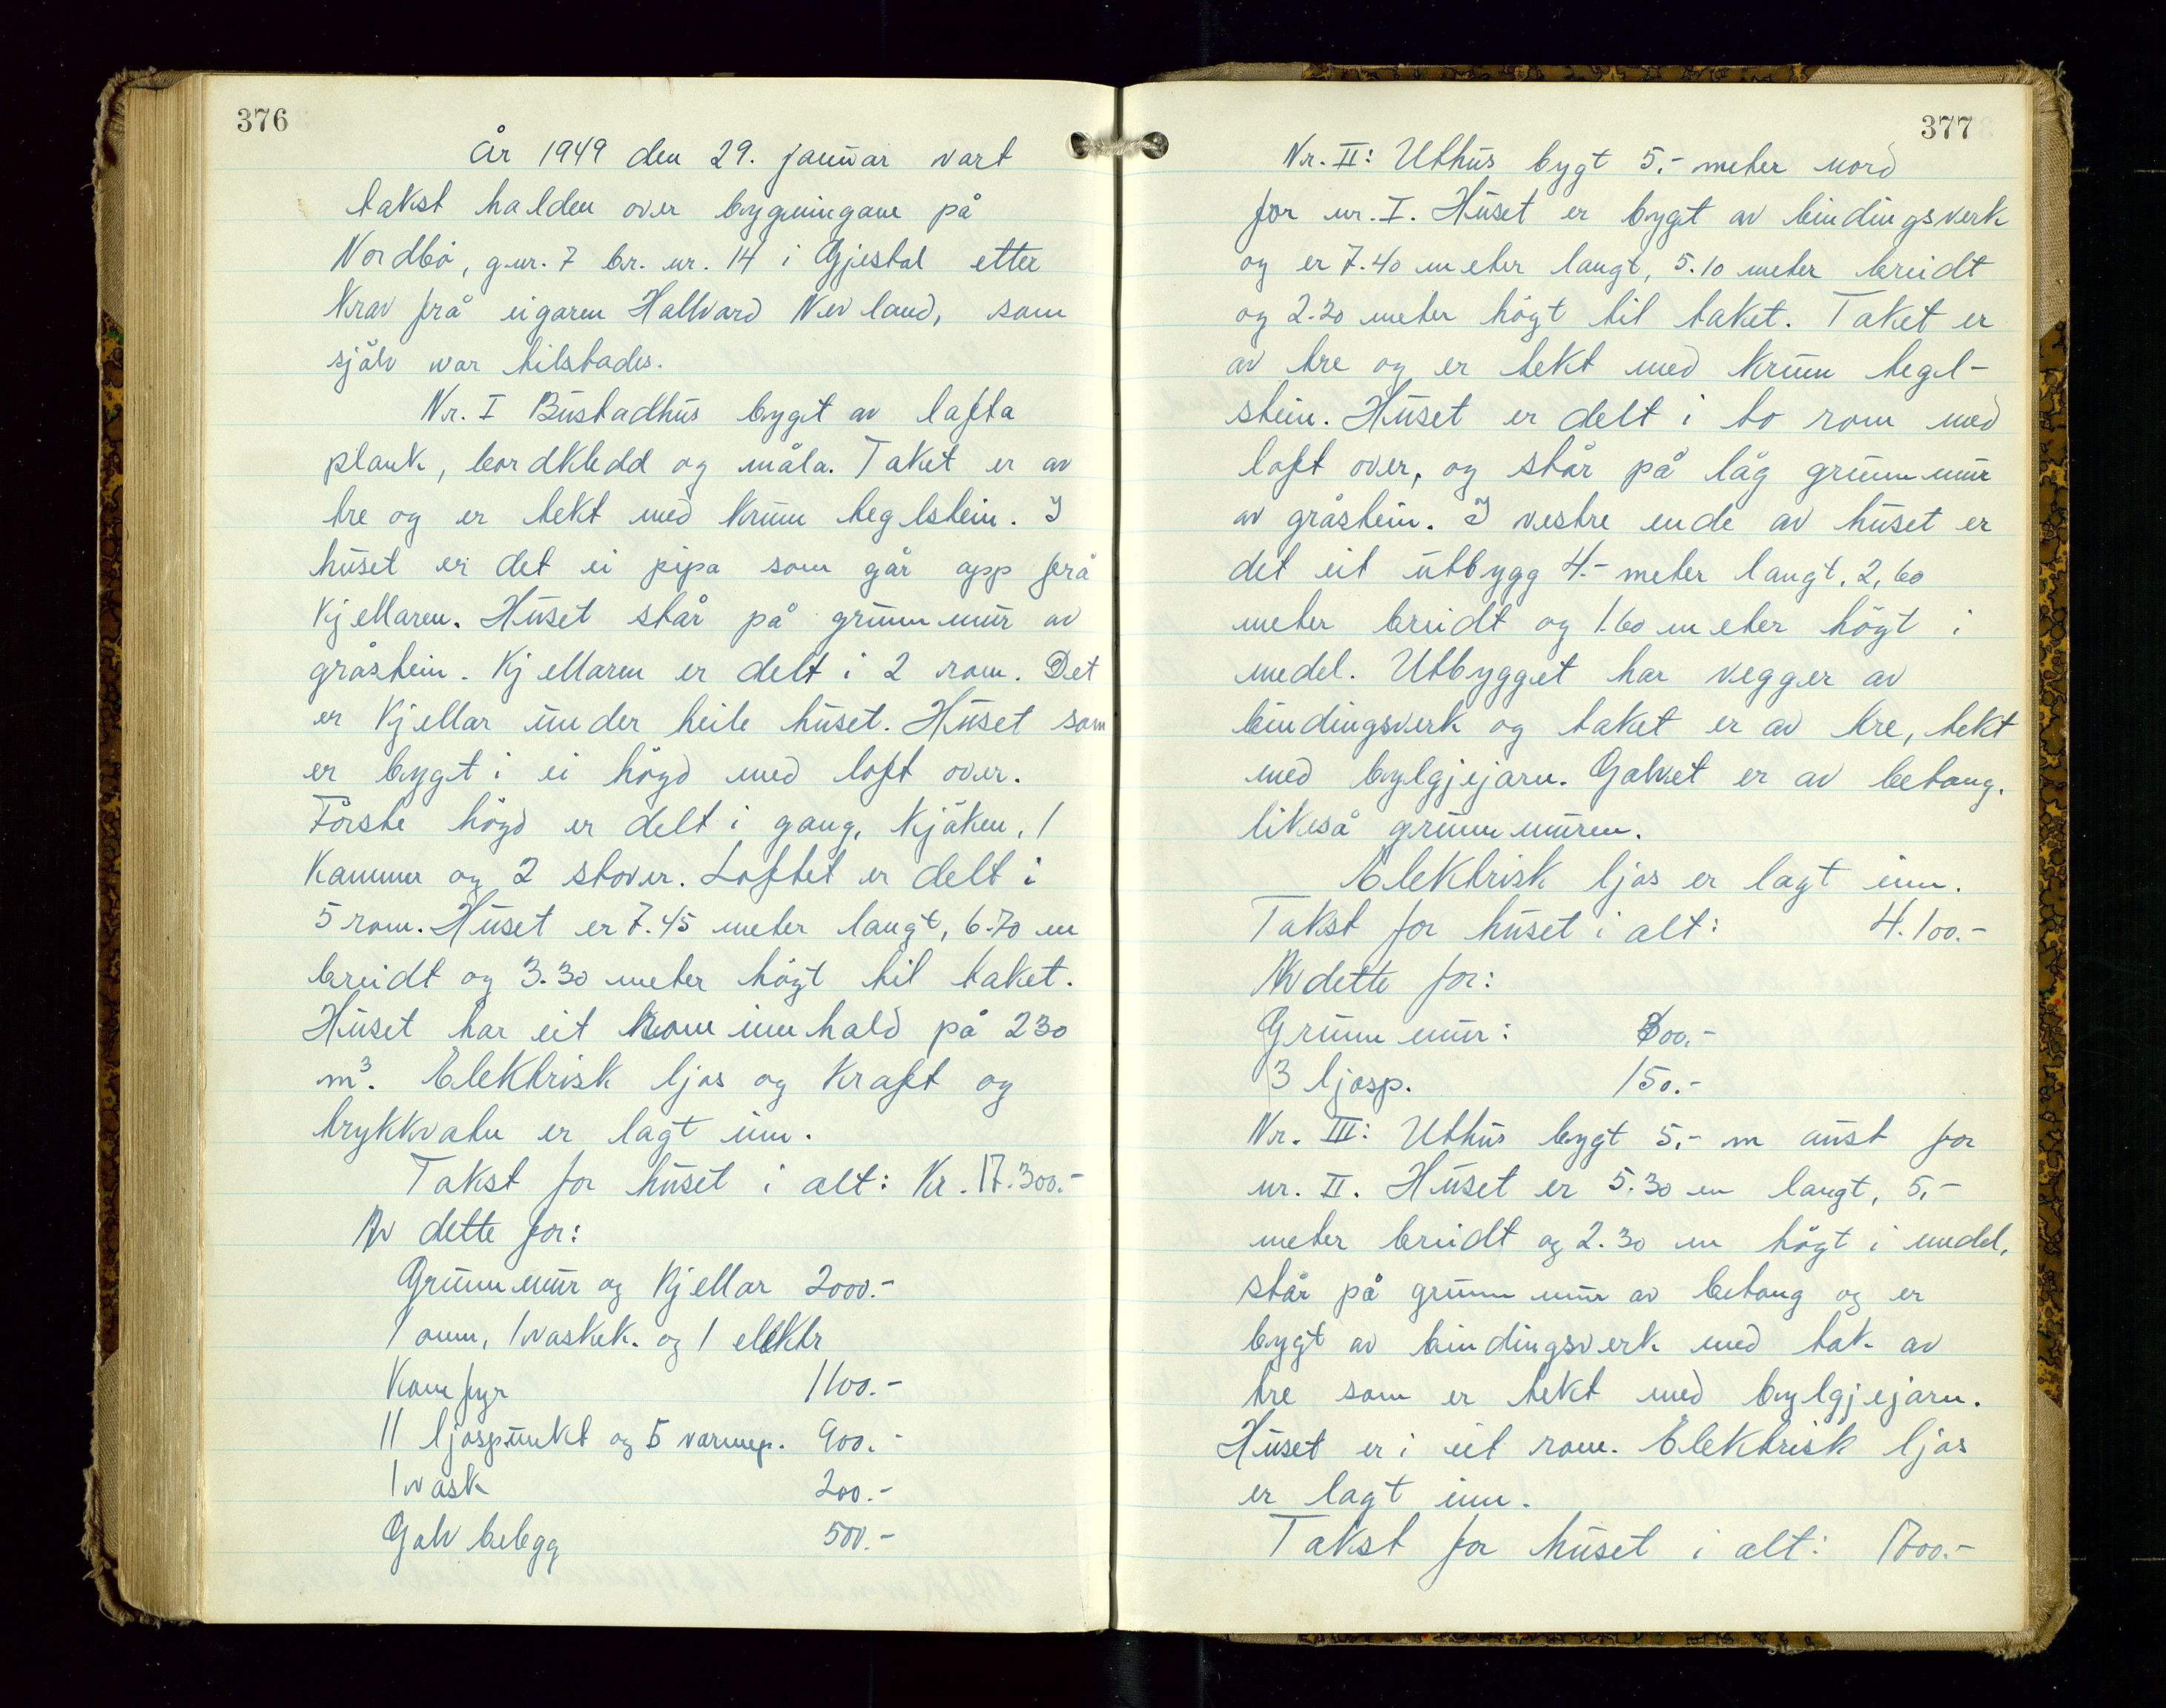 376
År 1949 den 29. januar vart
takst halden over bygningane på
Nordbö, g.nr. 7 br. nr. 14 i Gjestal etter
krav frå eigaren Hallvard Nevland, som
sjölv var tilstades.
Nr. I Bustadhus bygt av lafta
plank, bordkledd og måla. Taket er av
tre og er tekt med krum teglstein. I
huset er det ei pipa som går opp frå
kjellaren. Huset står på grunnmur av
gråstein. Kjellaren er delt i 2 rom. Det
er kjellar under heile huset. Huset som
er bygt i ei högd med loft over.
Förste högd er delt i gang, kjöken, 1
kammer og 2 stover. Loftet er delt i
5 rom. Huset er 7.45 meter langt, 6.70 m
breidt og 3.30 meter högt til taket.
Huset har eit rominnhald på 230
m³. Elektrisk ljos og kraft og
trykkvatn er lagt inn.
Takst for huset i alt: Kr. 17.300.-
Av dette for:
Grunnmur og kjellar 2000.-
1 omn, 1 vaskek. og 1 elektr
komfyr 1100.-
11 ljospunkt og 5 varmep. 900.-
1 vask 200.-
Golvbelegg 500.-
377
Nr. II: Uthus bygt 5.- meter nord
for nr. I. Huset er bygt av bindingsverk
og er 7.40 meter langt, 5.10 meter breidt
og 2.20 meter högt til taket. Taket er
av tre og er tekt med krum tegl-
stein. Huset er delt i to rom med
loft over, og står på låg grunnmur
av gråstein. I vestre ende av huset er
det eit utbygg 4.- meter langt, 2,60
meter breidt og 1.60 meter högt i
medel. Utbygget har vegger av
bindingsverk og taket er av tre, tekt
med bylgjejarn. Golvet er av betong,
likeså grunnmuren.
Elektrisk ljos er lagt inn.
Takst for huset i alt: 4.100.-
Av dette for:
Grunnmur: 00.-
3 ljosp. 150.-
Nr. III: Uthus bygt 5,- m aust for
nr. II. Huset er 5.30 m langt, 5,-
meter breidt og 2.30 m högt i medel,
står på grunnmur av betong og er
bygt av bindingsverk med tak av
tre som er tekt med bylgjejarn.
Huset er i eit rom. Elektrisk ljos
er lagt inn.
Takst for huset i alt: 1700.-